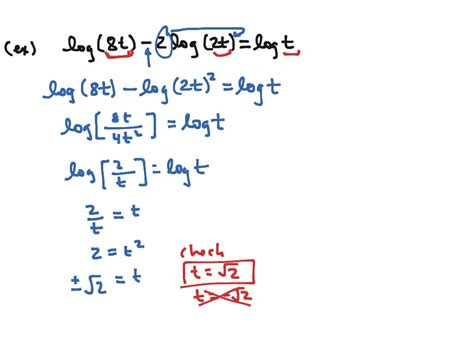 (ex) log(8t) - 2 log(2t) = log t
log(8t) - log(2t)² = log t
log[8t/4t²] = log t
log[2/t] = log t
2/t = t
2 = t²
±√2 = t
check
t = √2
t = -√2